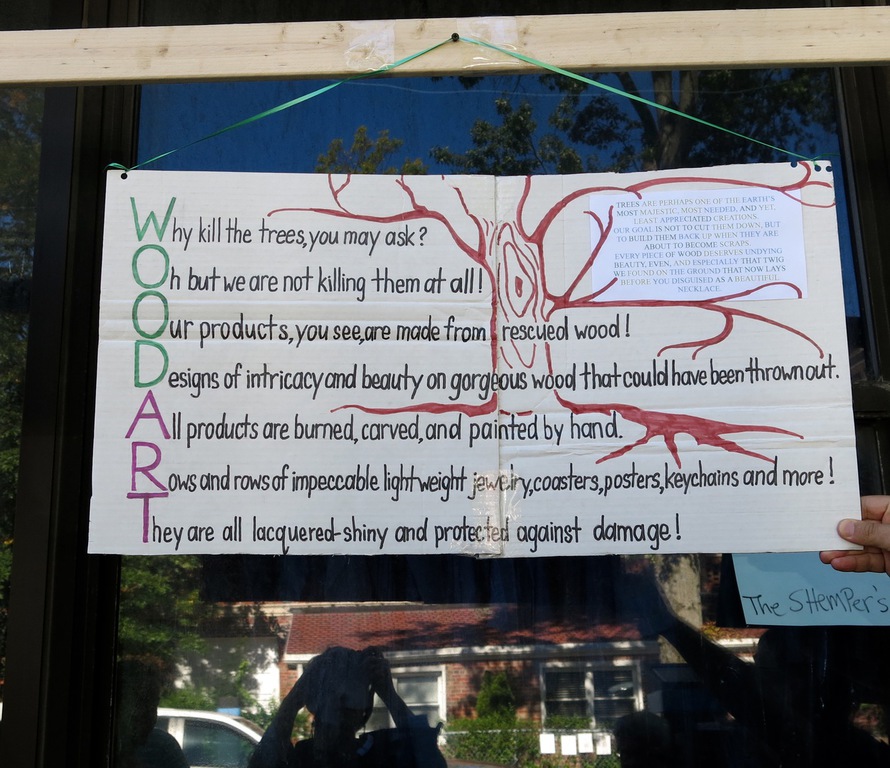 Why kill the trees, you may ask?
Oh but we are not killing them at all!
Our products, you see, are made from rescued wood!
Designs of intricacy and beauty on gorgeous wood that could have been thrown out.
All products are burned, carved, and painted by hand.
Rows and rows of impeccable lightweight jewelry, coasters, posters, keychains and more!
They are all lacquered-shiny and protected against damage!
TREES ARE PERHAPS ONE OF THE EARTH'S
MOST MAJESTIC, MOST NEEDED, AND YET,
LEAST APPRECIATED CREATIONS.
OUR GOAL IS NOT TO CUT THEM DOWN, BUT
TO BUILD THEM BACK UP WHEN THEY ARE
ABOUT TO BECOME SCRAPS.
EVERY PIECE OF WOOD DESERVES UNDYING
BEAUTY, EVEN, AND ESPECIALLY THAT TWIG
WE FOUND ON THE GROUND THAT NOW LAYS
BEFORE YOU DISGUISED AS A BEAUTIFUL
NECKLACE.
The SHemPer's